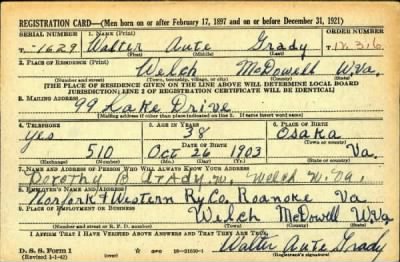 REGISTRATION CARD—(Men born on or after February 17, 1897 and on or before December 31, 1921)
SERIAL NUMBER 1. NAME (Print) ORDER NUMBER
T- 1629 Walter Aute Grady
(First) (Middle) (Last)
2. PLACE OF RESIDENCE (Print)
Welch McDowell W.Va.
(Number and street) (Town, township, village, or city) (County) (State)
[THE PLACE OF RESIDENCE GIVEN ON THE LINE ABOVE WILL DETERMINE LOCAL BOARD
JURISDICTION; LINE 2 OF REGISTRATION CERTIFICATE WILL BE IDENTICAL]
3. MAILING ADDRESS
99 Lake Drive
[Mailing address if other than place indicated on line 2. If same insert word same]
4. TELEPHONE 5. AGE IN YEARS 6. PLACE OF BIRTH
Yes 38 Osaka
DATE OF BIRTH (Town or county)
510 Oct 26 1903 Va.
(State or country)
7. NAME AND ADDRESS OF PERSON WHO WILL ALWAYS KNOW YOUR ADDRESS
Dorothea B Grady Welch W.Va.
8. EMPLOYER'S NAME AND ADDRESS
Norfork & Western Ry Co. Roanoke Va
9. PLACE OF EMPLOYMENT OR BUSINESS
Welch McDowell W.Va
(Number and street or R. F. D. number) (Town) (County) (State)
I AFFIRM THAT I HAVE VERIFIED ABOVE ANSWERS AND THAT THEY ARE TRUE.
D. S. S. Form 1
(Revised 1-1-42) (over) GPO 16—21630-1 Walter Aute Grady
(Registrant's signature)